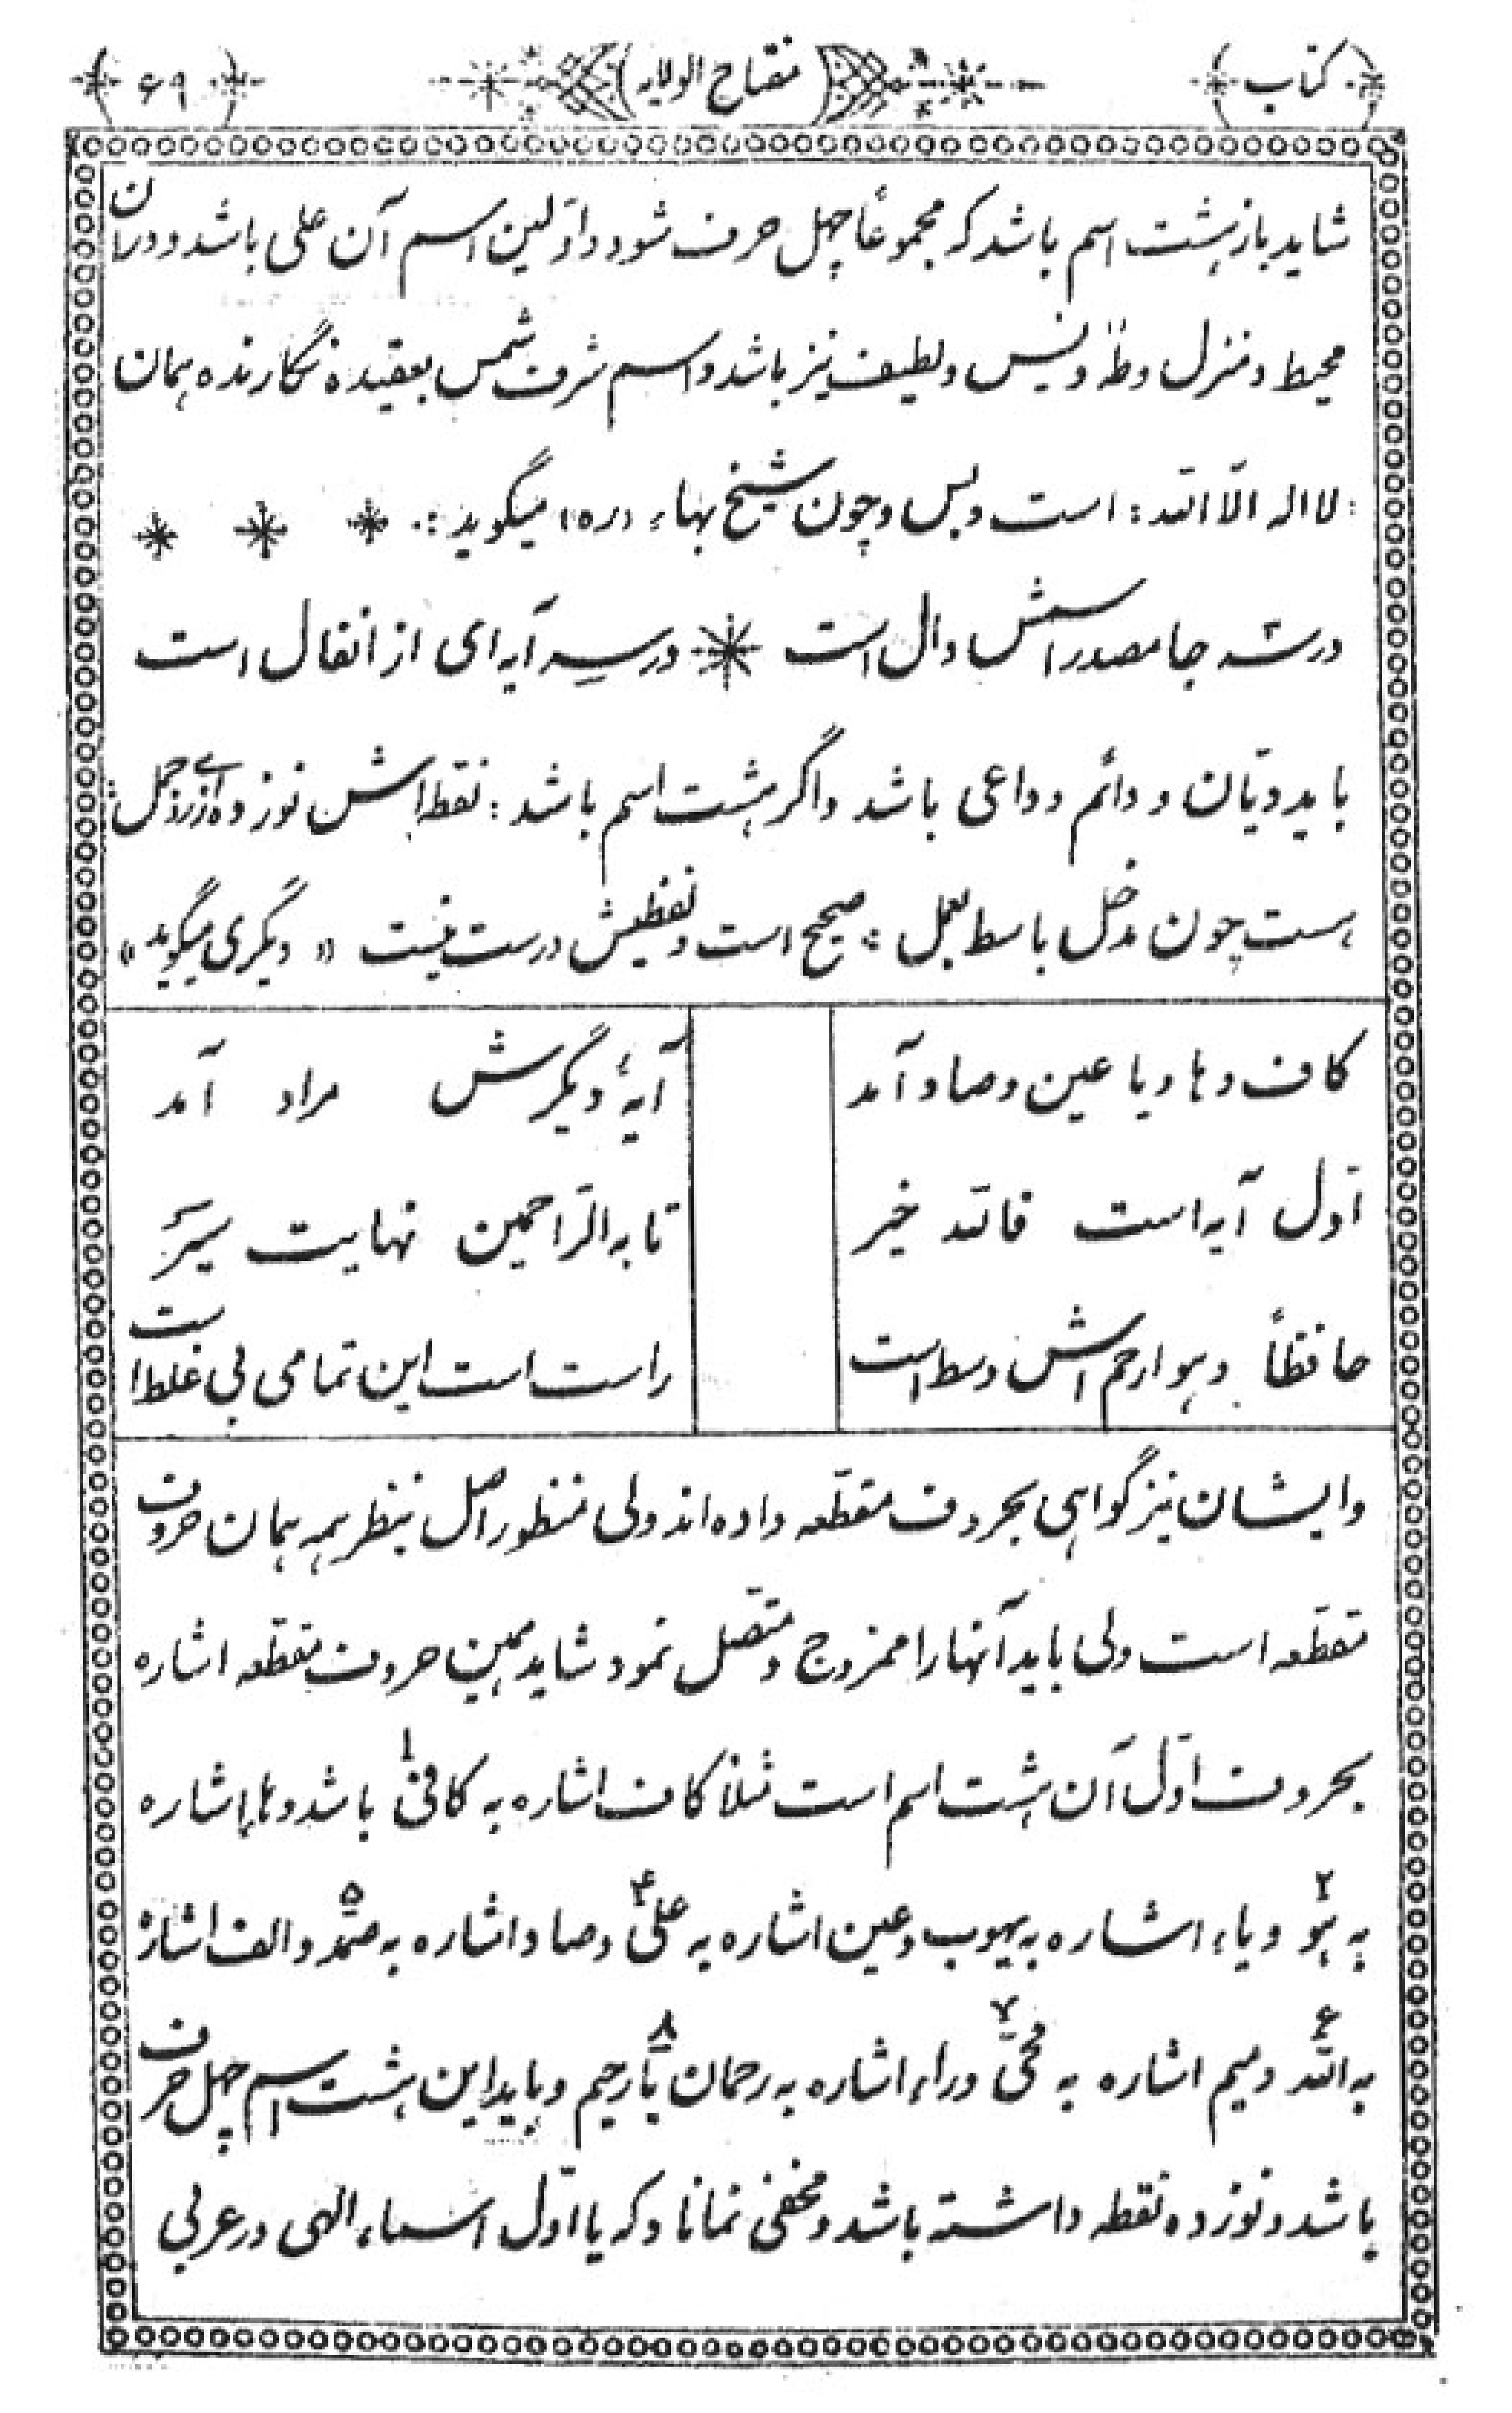 کتاب مفتاح الولایه ۶۹
شاید باز هشت اسم باشد که مجموعاً چهل حرف شود و اوّلین اسم آن علی باشد و در آن
محیط و منزل و طه و یس و لطیف نیز باشد و اسم شرف شمس بعقیده نگارنده همان
: لا اله الّا الله : است و بس و چون شیخ بهاء (ره) میگوید :.
در سه جا مصدر اسمش دال است * در سه آیه‌ای از انفال است
باید دیّان و دائم و داعی باشد و اگر هشت اسم باشد : نقطه‌اش نوزده از ره جمل :
هست چون مدخل باسط بعمل : صحیح است و لفظیش درست نیست « دیگری میگوید »
کاف و ها و یا عین و صاد آمد آیهٔ دیگرش مراد آمد
اوّل آیه است فالله خیر تا به الرّاحمین نهایت سیر
حافظاً و هو ارحم اش وسط است راست است این تمامی بی غلط است
و ایشان نیز گواهی بحروف مقطّعه داده‌اند ولی منظور اصل بنظرم همان حروف
مقطّعه است ولی باید آنها را ممزوج و متّصل نمود شاید همین حروف مقطّعه اشاره
بحروف اوّل آن هشت اسم است مثلا کاف اشاره به کافی ۱ باشد و هاء اشاره
به هو ۲ و یاء اشاره به یهوب و عین اشاره به علی ۴ و صاد اشاره به صمد ۵ و الف اشاره
به الله ۶ و میم اشاره به محیی ۷ و راء اشاره به رحمان ۸ یا رحیم و باید این هشت اسم چهل حرف
باشد و نوزده نقطه داشته باشد و مخفی نماناد که یا اوّل اسماء الهی در عربی